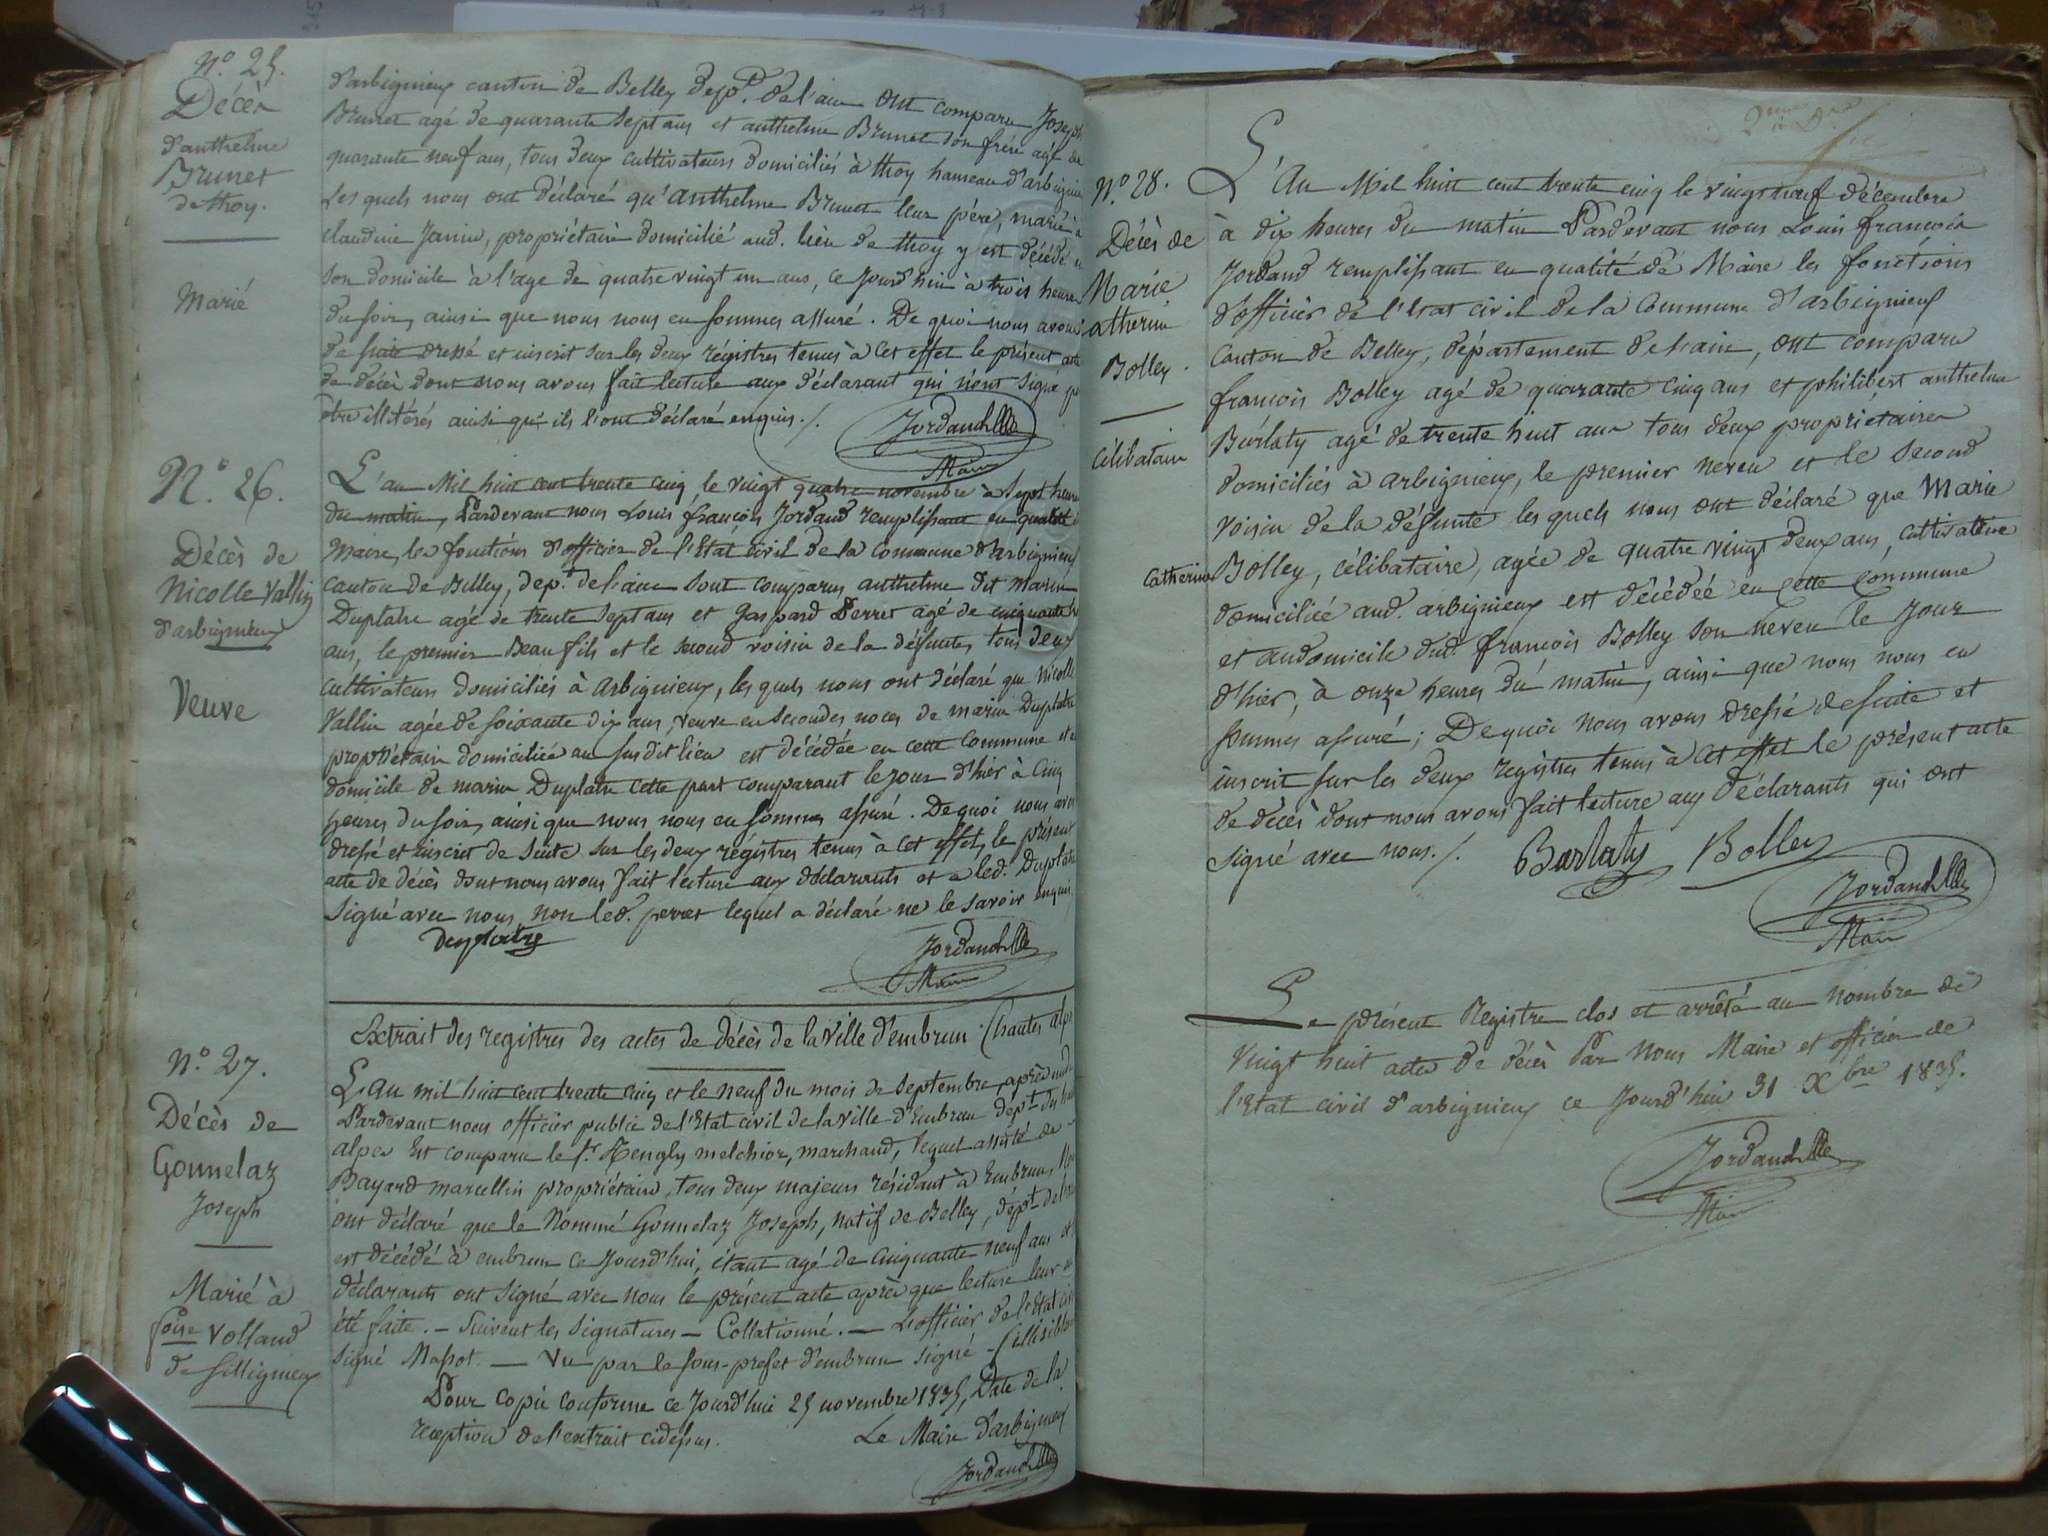 N.º 25.
Décès
d'anthelme
Brunet
de thoy.
Marié
d'arbignieux canton de Belley dep.t de l'ain ont comparu Joseph
Brunet agé de quarante sept ans et anthelme Brunet son frère agé de
quarante neuf ans, tous deux cultivateurs domiciliés à thoy hameau d'arbignieu
les quels nous ont déclaré qu'anthelme Brunet leur père, marié à
claudine Janin, propriétaire domicilié aud. lieu de thoy y est décédé
son domicile à l'age de quatre vingt un ans, ce jourd'hui à trois heures
du soir, ainsi que nous nous en sommes assuré. De quoi nous avons
de suite dressé et inscrit sur les deux régistres tenus à cet effet le présent acte
de décès dont nous avons fait lecture aux déclarant qui n'ont signé p
être illitérés ainsi qu'ils l'ont déclaré enquis ./.
Jordand
Maire
N.º 26.
Décès de
Nicolle Vallin
d'arbignieux
Veuve
L'an Mil huit cent trente cinq le vingt quatre novembre à sept heures
du matin, Pardevant nous Louis françois Jordand remplissant en qualité
maire, les fonctions d'officier de l'Etat civil de la commune d'arbignieux
canton de Belley, dep.t de l'ain sont comparus anthelme dit marin
Duplatre agé de trente sept ans et Gaspard Perret agé de cinquante
ans, le premier Beau fils et le second voisin de la défunte, tous deux
cultivateurs domiciliés à Arbignieux, les quels nous ont déclaré que Nicolle
Vallin agée de soixante dix ans, veuve en secondes noces de marin Duplatre
propriétaire domiciliée au susdit lieu est décédée en cette commune et
domicile de marin Duplatre cette part comparant le jour d'hier à cinq
heures du soir, ainsi que nous nous en sommes assuré. De quoi nous avons
dressé et inscrit de suite sur les deux régistres tenus à cet effet, le présent
acte de décès dont nous avons fait lecture aux déclarants et a led. Duplatre
signé avec nous, non led. perret lequel a déclaré ne le savoir enquis
Duplatre
Jordand
Maire
N.º 27.
Décès de
Gonnelaz
Joseph
Marié à
foise Volland
de Silligneux
Extrait des registres des actes de décès de la ville d'embrun (hautes alpes
L'an mil huit cent trente cinq et le neuf du mois de septembre, après midi
Pardevant nous officier public de l'Etat civil de la ville d'Embrun dep.t des hautes
alpes Est comparu le s.r Hengly melchior, marchand, lequel assisté de
Bayard marcellin propriétaire, tous deux majeurs résidant à Embrun,
ont déclaré que le Nommé Gonnelaz Joseph, natif de Belley, dép.t de l'ain
est décédé à embrun ce jourd'hui, étant agé de cinquante neuf ans et
déclarants ont signé avec nous le présent acte après que lecture leur a
été faite. — Suivent les signatures — Collationné. — L'officier de l'Etat civil
signé Massot. — Vu par le sous-prefet d'embrun signé — (illisible)
Pour copie conforme ce jourd'hui 25 novembre 1835, Date de la
reception de l'extrait cidessus.
Le Maire d'arbignieux
Jordand
N.º 28.
Décès de
Marie
catherine
Bolley.
célibataire
L'An Mil huit cent trente cinq le vingt neuf décembre
à dix heures du matin Pardevant nous Louis françois
Jordand remplissant en qualité de Maire les fonctions
d'officier de l'Etat civil de la commune d'arbignieux
canton de Belley, département de l'ain, ont comparu
françois Bolley agé de quarante cinq ans et philibert anthelme
Barlaty agé de trente huit ans tous deux propriétaires
domiciliés à arbignieux, le premier neveu et le second
voisin de la défunte les quels nous ont déclaré que Marie
catherine Bolley, célibataire, agée de quatre vingt deux ans, cultivatrice
domiciliée aud. arbignieux est décédée en cette commune
et au domicile dud. françois Bolley son neveu le jour
d'hier, à onze heures du matin, ainsi que nous nous en
sommes assuré; De quoi nous avons dressé de suite et
inscrit sur les deux registres tenus à cet effet le présent acte
de décès dont nous avons fait lecture aux déclarants qui ont
signé avec nous ./.
Barlaty Bolley
Jordand
Maire
Le présent Registre clos et arrêté au nombre de
vingt huit actes de décès Par Nous Maire et officier de
l'Etat civil d'arbignieux ce jourd'hui 31 Xbre 1835.
Jordand
Maire